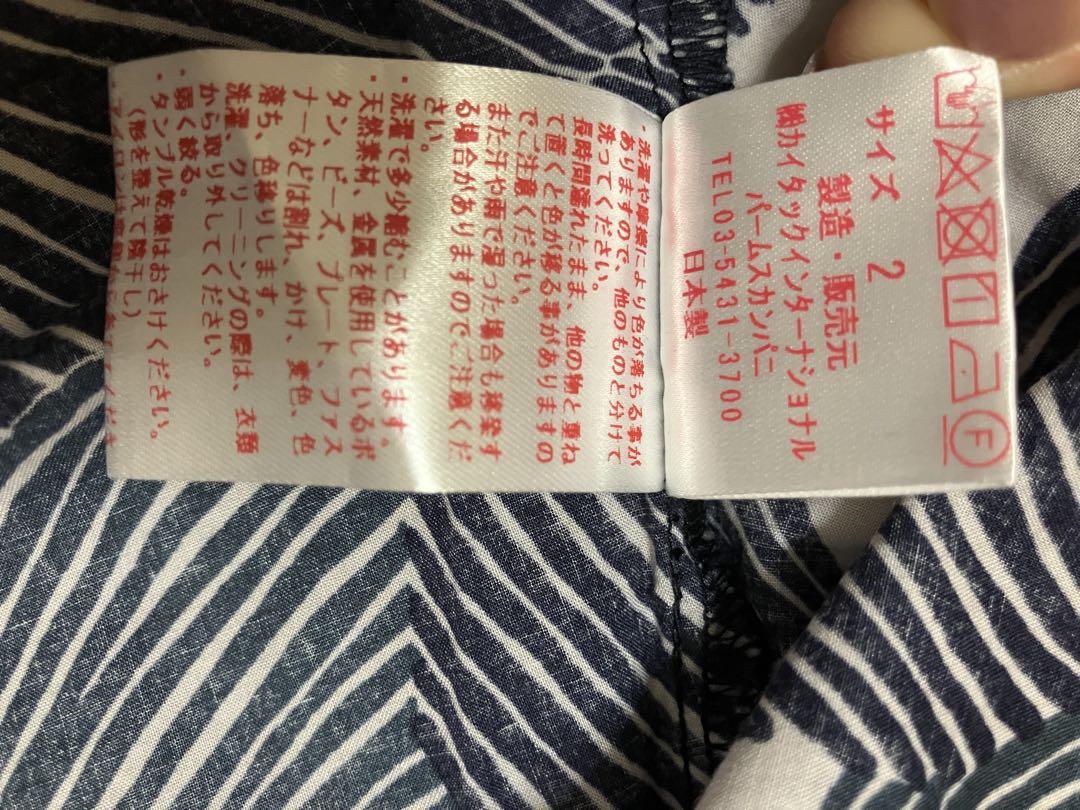 サイズ 2
製造・販売元
㈱カイタックインターナショナル
パームスカンパニ
TEL03-5431-3700
日本製
・洗濯や摩擦により色が落ちる事が
ありますので、他のものと分けて
洗ってください。
長時間濡れたまま、他の物と重ね
て置くと色が移る事がありますの
でご注意ください。
また汗や雨で湿った場合も移染す
る場合がありますのでご注意くだ
さい。
・洗濯で多少縮むことがあります。
・天然素材、金属を使用しているボ
タン、ビーズ、プレート、ファス
ナーなどは割れ、かけ、変色、色
落ち、色移りします。
洗濯、クリーニングの際は、衣類
から取り外してください。
・弱く絞る。
・タンブル乾燥はおさけください。
(形を整えて陰干し)
F